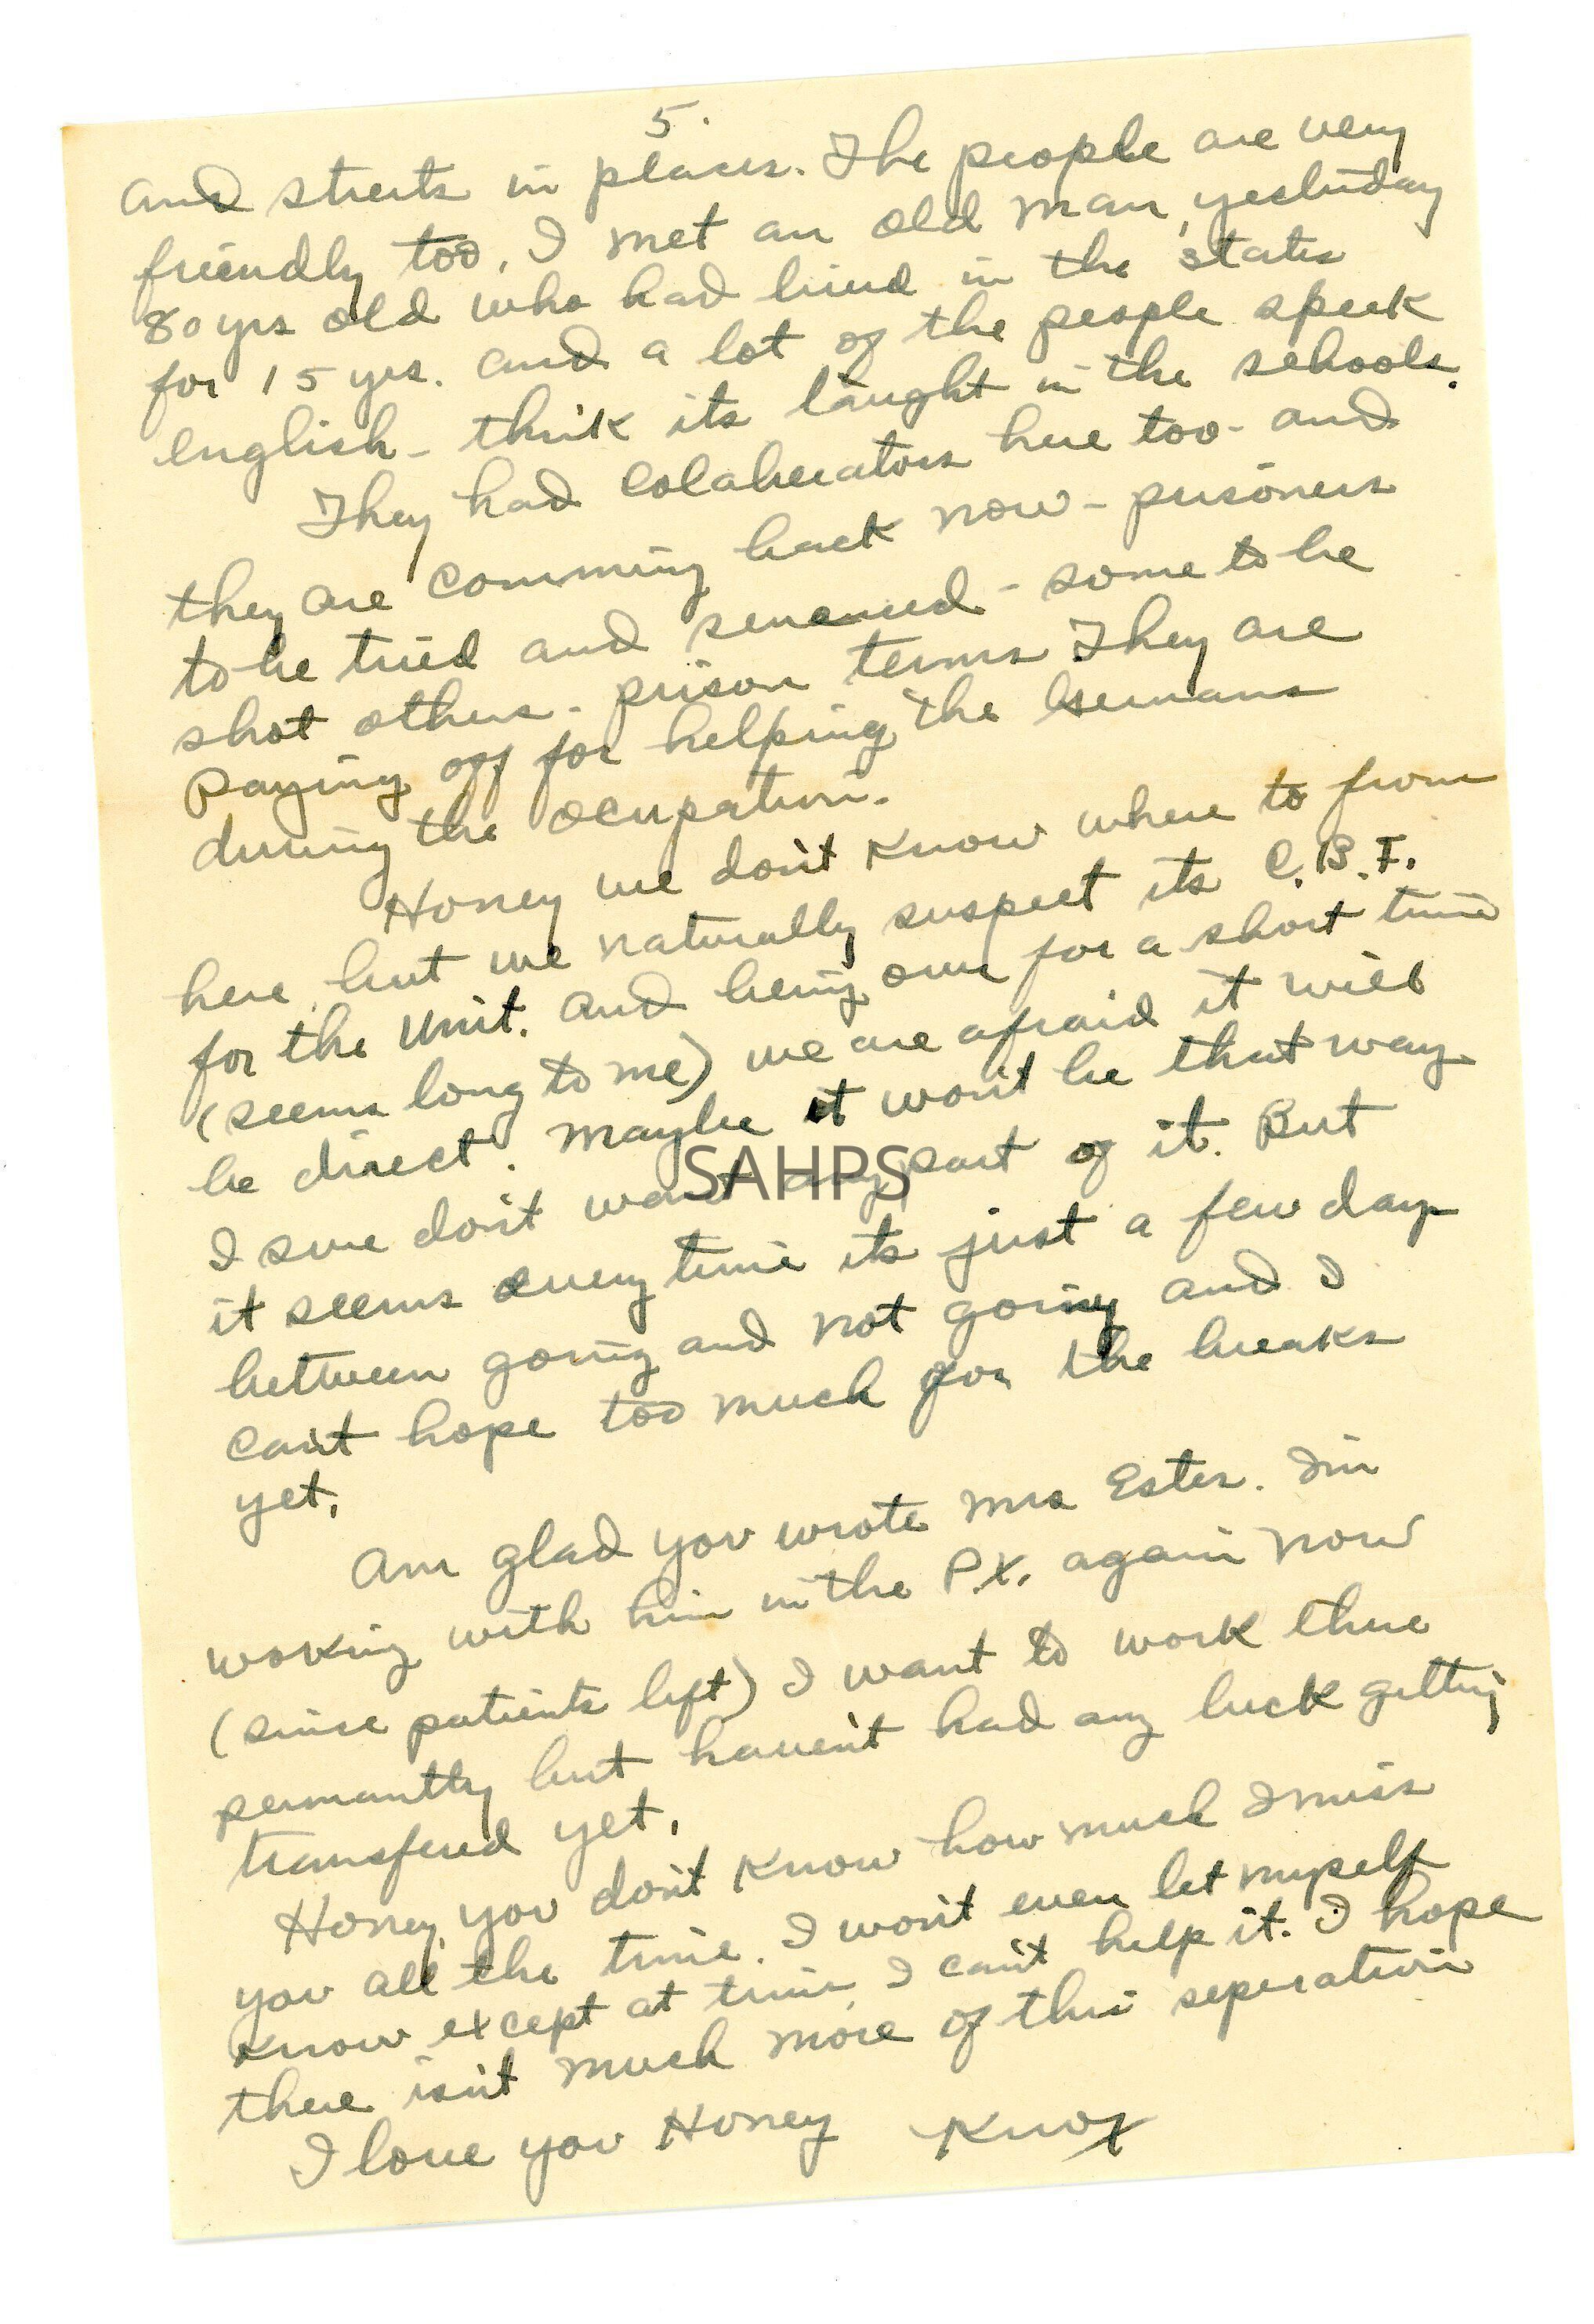 5.
and streets in places. The people are very
friendly too, I met an old man, yesterday
80 yrs old who had lived in the states
for 15 yrs. and a lot of the people speek
english - think its taught in the schools.
They had colaberators here too - and
they are comming back now - prisoners
to be tried and - some to be
shot others - prison terms They are
paying off for helping the Germans
during the ocupation.
Honey we don't know where to from
here, but we naturally suspect its C.B.I.
for the unit. and being over for a short time
(seems long to me) we are afraid it will
be direct. maybe it won't be that way
SAHPS
I sure don't want any part of it. But
it seems every time its just a few days
between going and not going and I
can't hope too much for the breaks
yet.
Am glad you wrote Mrs Estes. I'm
working with him in the P.X. again now
(since patients left) I want to work there
permantly but haven't had any luck getting
transfered yet.
Honey, you don't know how much I miss
you all the time. I won't even let myself
know except at times, I can't help it. I hope
there isn't much more of this seperation
I love you Honey Knox